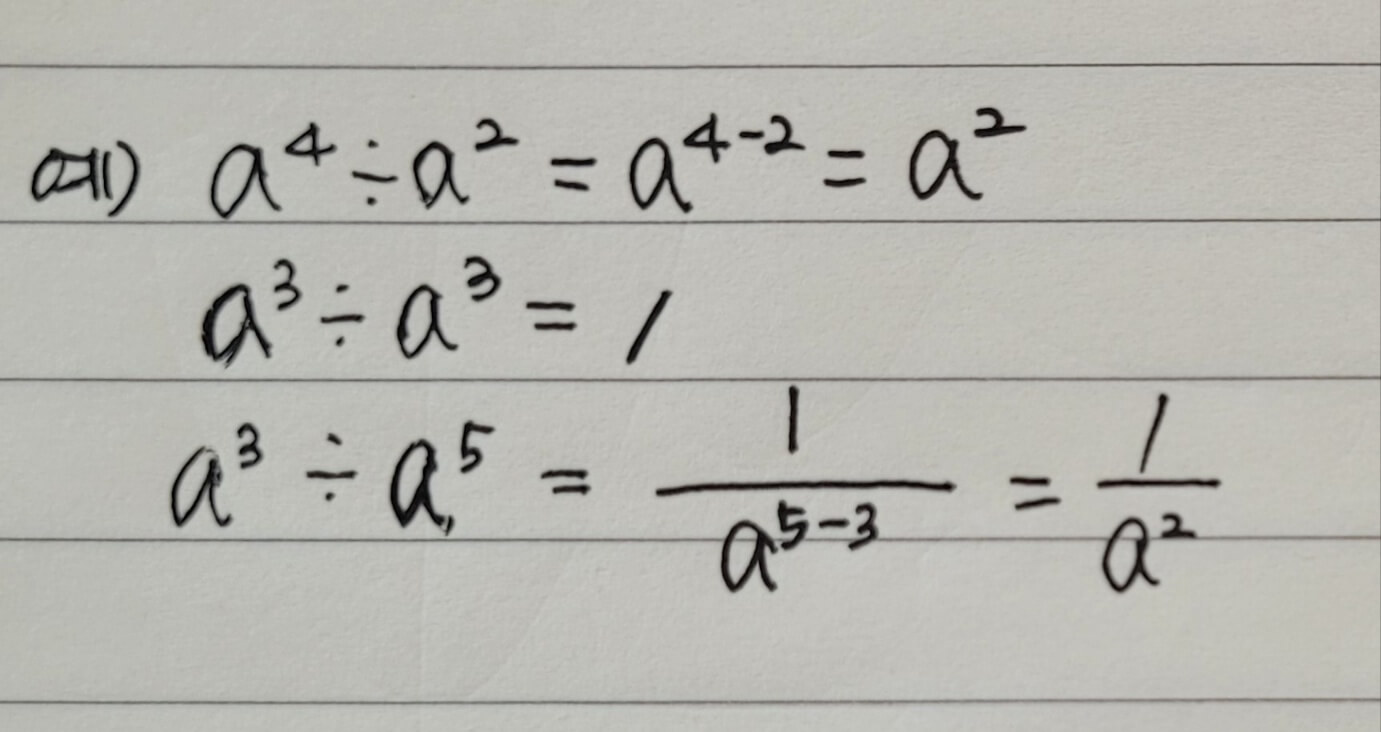 예) a⁴ ÷ a² = a⁴⁻² = a²
a³ ÷ a³ = 1
a³ ÷ a⁵ = 1/a⁵⁻³ = 1/a²